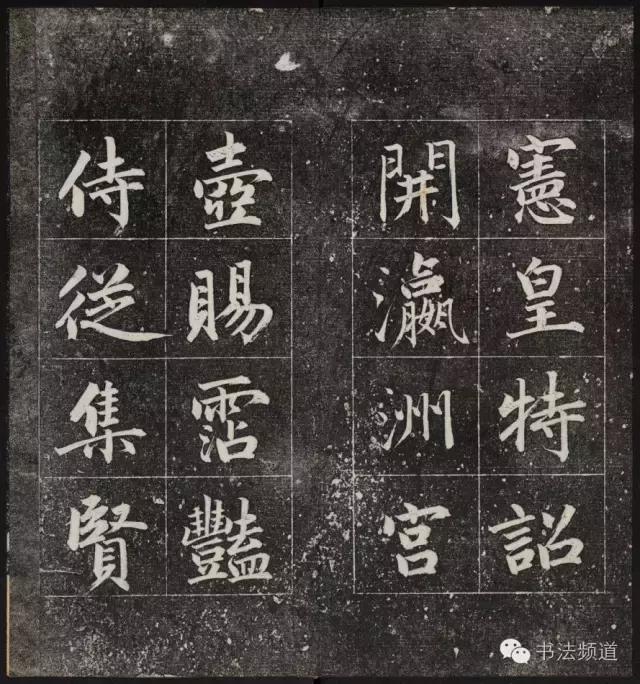 憲皇特詔
開瀛洲宮
壺賜霑豔
侍從集賢
书法频道